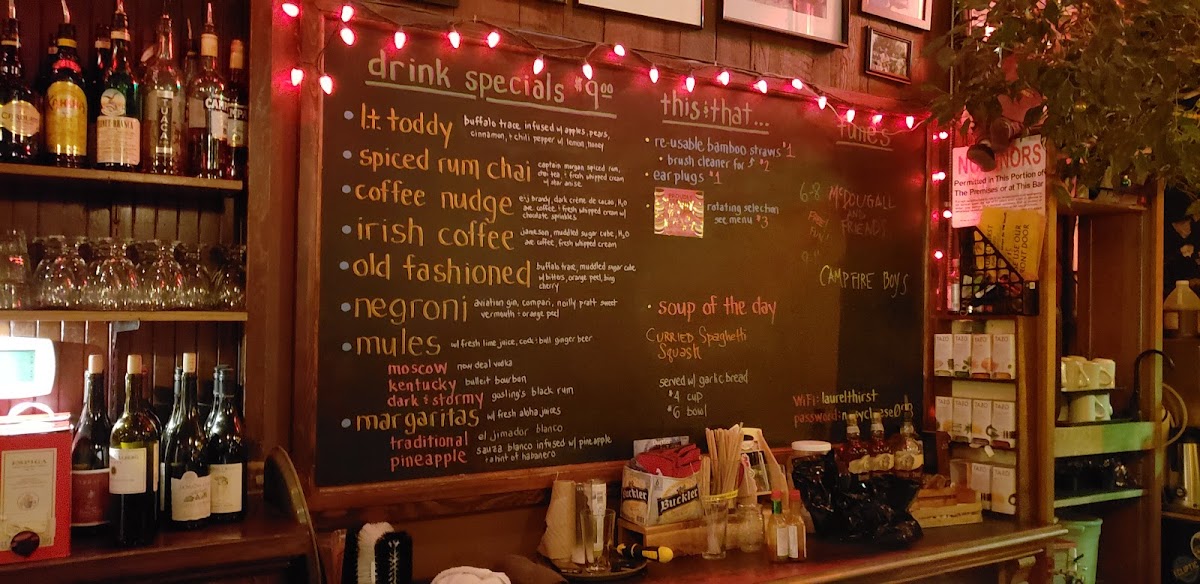 drink specials $9.00
l.t. toddy
buffalo trace infused w/ apples, pears,
cinnamon, + chili pepper w/ lemon, honey
spiced rum chai
captain morgan spiced rum,
chai tea, + fresh whipped cream
w/ star anise
coffee nudge
e+j brandy, dark crème de cacao, H2O
ave coffee, + fresh whipped cream w/
chocolate sprinkles
irish coffee
jameson, muddled sugar cube, H2O
ave coffee, fresh whipped cream
old fashioned
buffalo trace, muddled sugar cube
w/ bitters, orange peel, bing
cherry
negroni
aviation gin, campari, noilly pratt sweet
vermouth + orange peel
mules
w/ fresh lime juice, cock + bull ginger beer
moscow
new deal vodka
kentucky
bulleit bourbon
dark + stormy
gosling's black rum
margaritas
w/ fresh aloha juices
traditional
el jimador blanco
pineapple
sauza blanco infused w/ pineapple
+ a hint of habanero
this + that...
re-usable bamboo straws $1
brush cleaner for $2
ear plugs $1
rotating selection
see menu $3
soup of the day
CURRIED Spaghetti
Squash
served w/ garlic bread
$4 cup
$6 bowl
tunes
6-8
McDOUGALL
AND
FRIENDS
CAMPFIRE BOYS
WiFi: laurelthirst
password:
NO MINORS
Permitted in This Portion of
The Premises or at This Bar
Buckler
Buckler
TUACA
TAZO
TAZO
TAZO